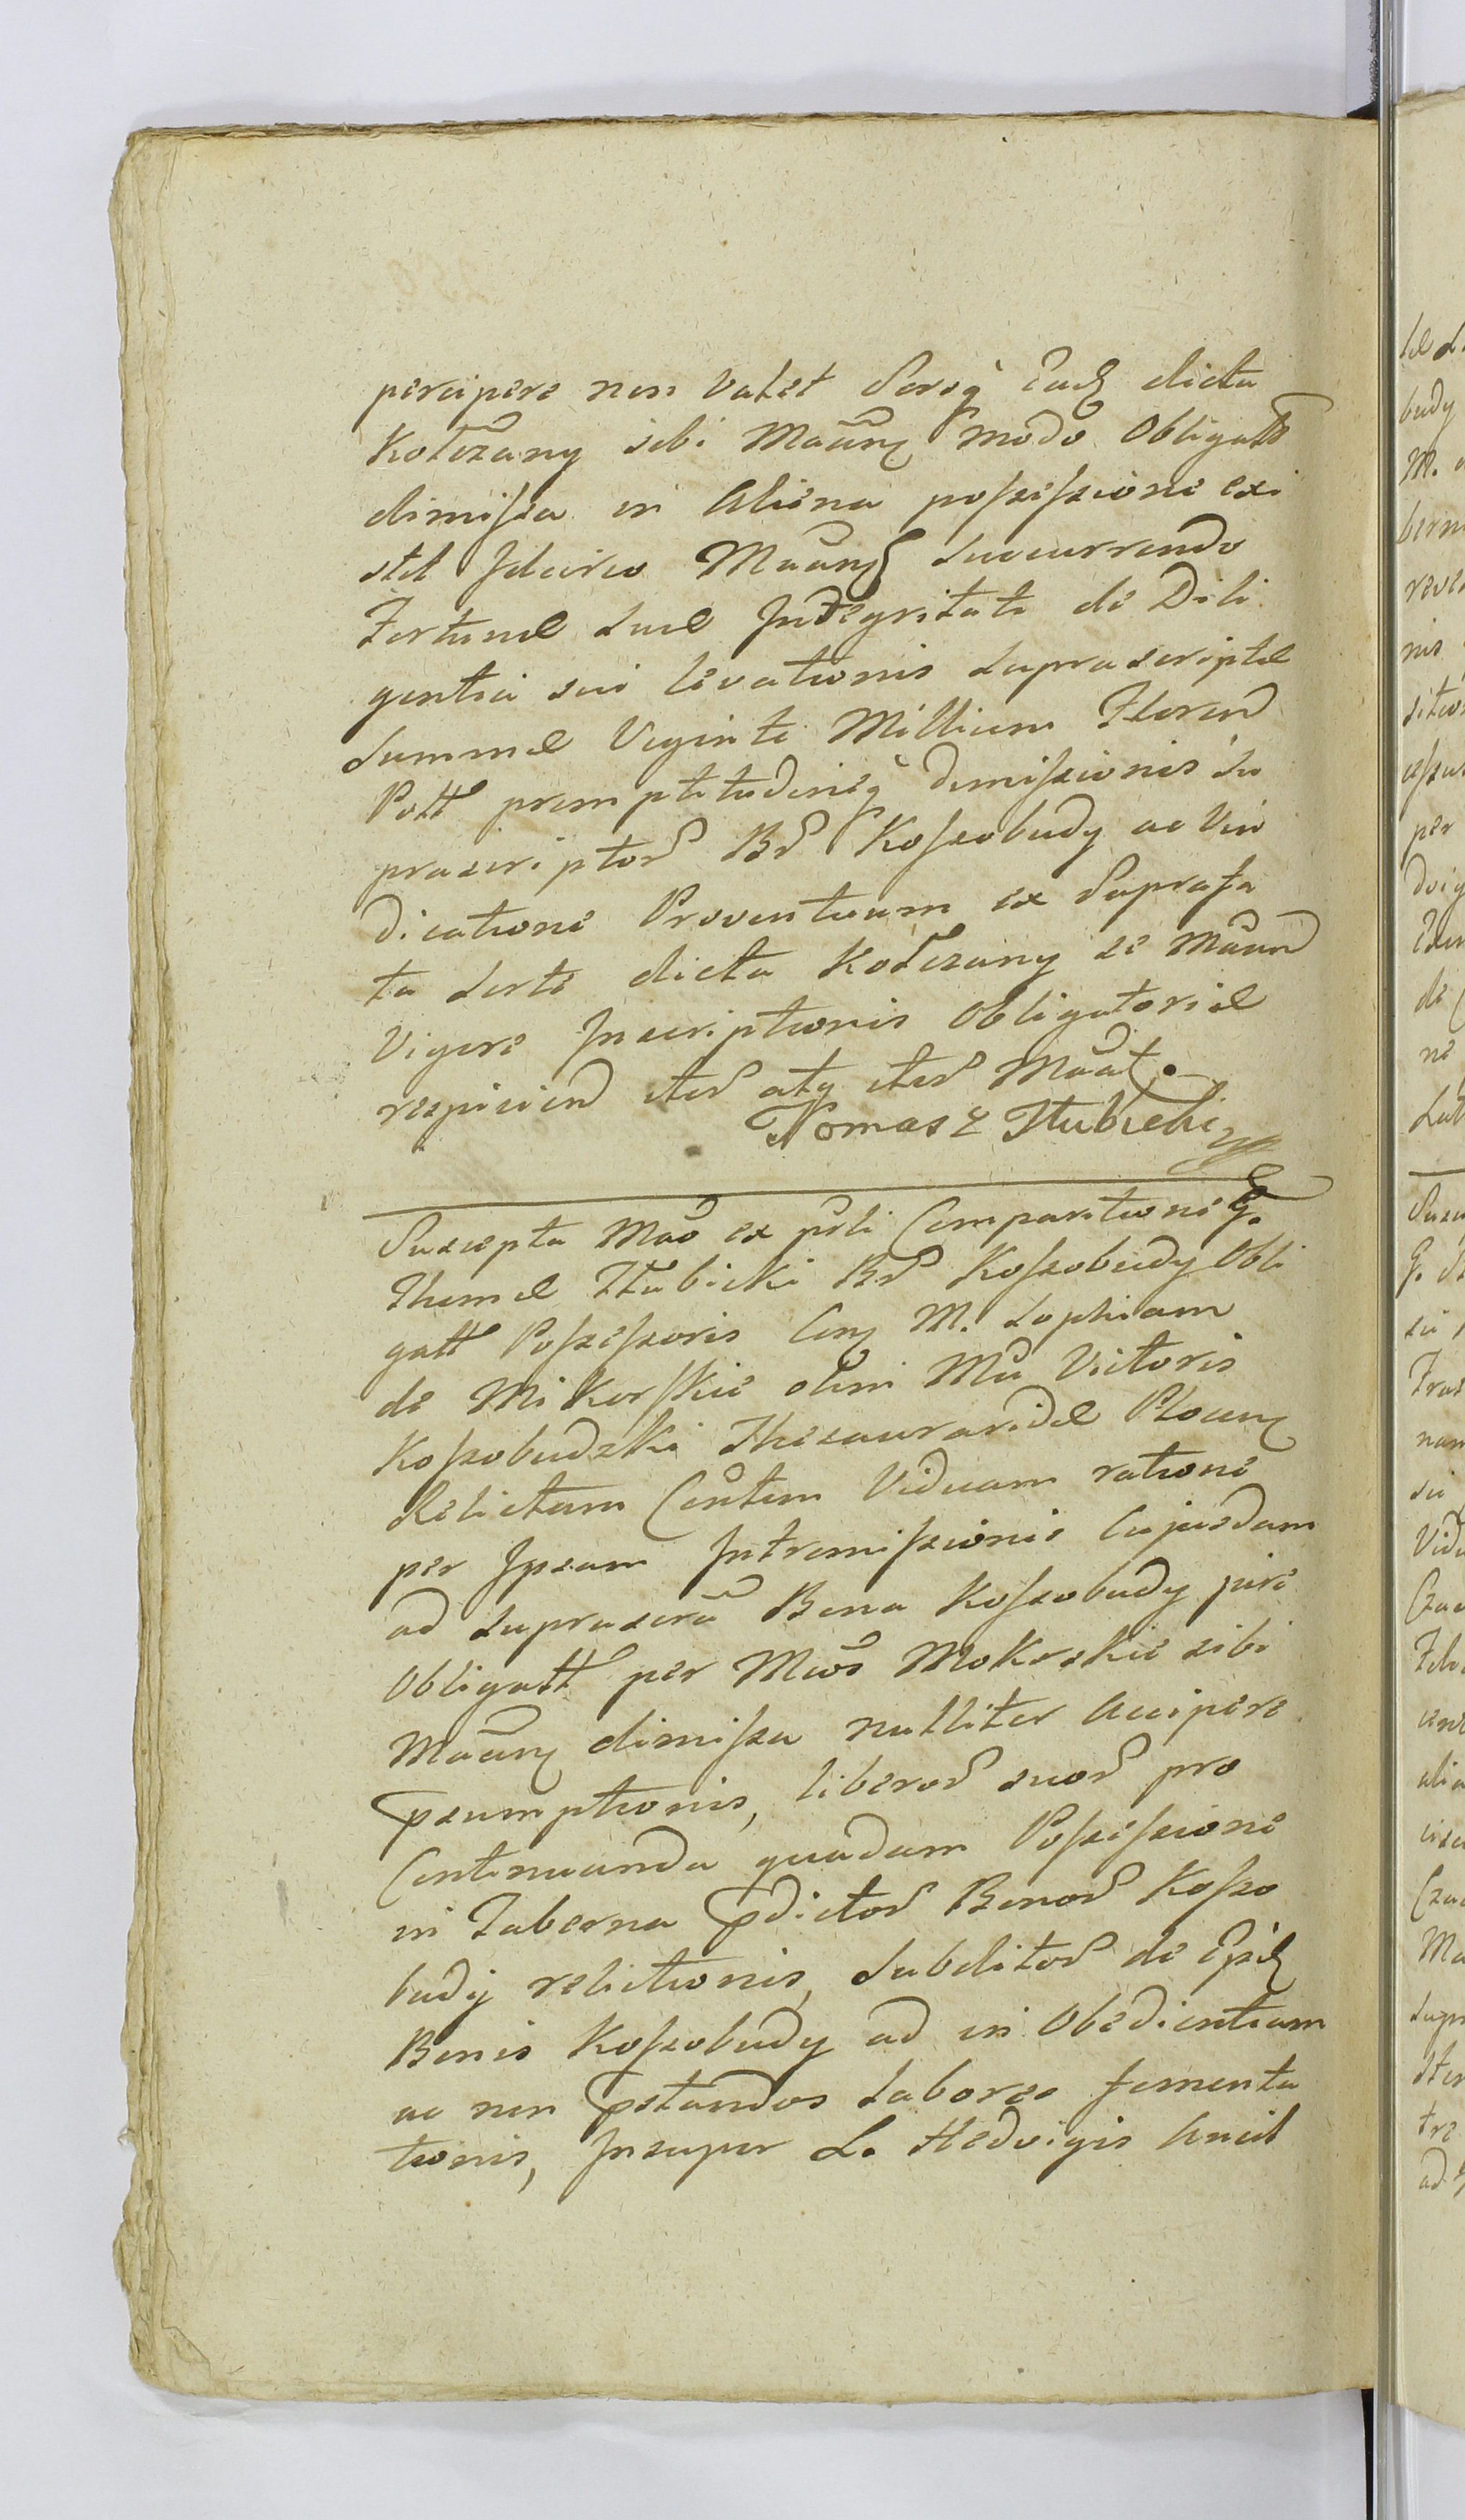 percipere non Valet Sorsq̀ Eadꝫ dicta
Kotczany sibi Maũnꝫ modo Obligatt
dimissa in Aliena possessione exi
stit Idcirco Maũnꝫ Succurrendo
Fortunæ Suæ Integritati de Dili
gentia sui levationis Suprascriptæ
Summæ Viginti Millium Floren
Poll promptitudineq̀ dimissionis Su
prascriptor Br Kossobudy ac Vin
dicatione Proventuum ex Suprafa
ta Sorte dicta Kotczany se Maũn
Vigore Inscriptionis Obligatoriæ
respicien iter atq iter Maat.
Tomasz Hłubicki
Suscepta Mão ex psli Comparitione G.
Thomæ Hłubicki Br Kossobudy Obli
gatt Possessoris Conꝫ M. Sophiam
de Mikorskie olim Mũ Victoris
Kossobudzki Thesauraridæ Plocenꝫ
Relictam Consortem Viduam ratione
per Ipsam Intromissionis Cujusdam
ad Suprascrã Bona Kossobudy jure
Obligatt per Mũos Mokrskie sibi
Maũnꝫ dimissa nulliter Accipere
psumptionis, liberor suor pro
Continuanda quadam Possessione
in Taberna pdictor Bonor Kosso
budy relictionis, Subditor de Eisdꝫ
Bonis Kossobudy ad in Obedientiam
ac non pstandos Labores fomenta
tionis, Insuper L. Hedvigis Ancil